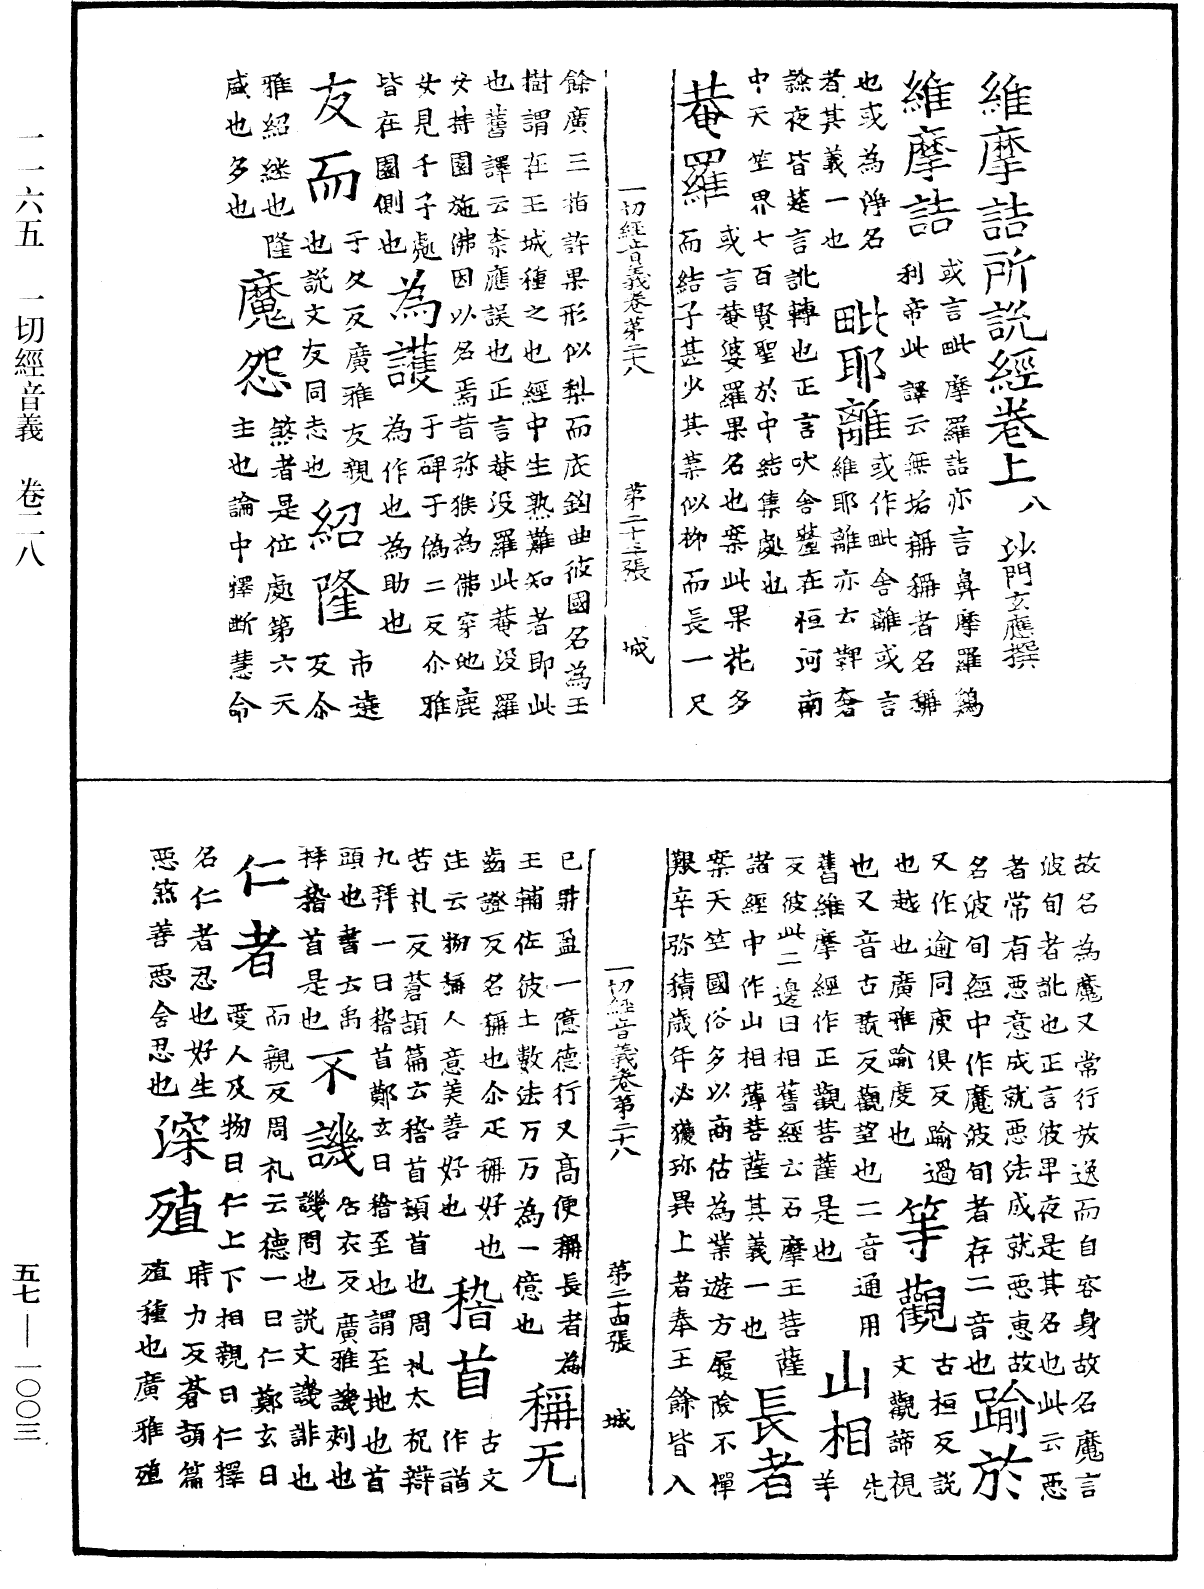 一一六五　一切經音義　卷二八
維摩詰所說經卷上　八　沙門玄應撰
維摩詰　或言毗摩羅詰亦言鼻摩羅鷄
利帝此譯云無垢稱稱者名稱
也或為淨名
者其義一也　毗耶離　或作毗舍離或言
維耶離亦云鞞奢
隸夜皆梵言訛轉也正言吠舍釐在恒河南
中天竺界七百賢聖於中結集處也
菴羅　或言菴婆羅果名也案此果花多
而結子甚少其葉似柳而長一尺
一切經音義卷第二十八　第二十三張　城
餘廣三指許果形似梨而底鈎曲彼國名為王
樹謂在王城種之也經中生熟難知者即此
也舊譯云柰應誤也正言菴没羅此菴没羅
女持園施佛因以名焉昔弥猴為佛穿池鹿
女見千子處
皆在園側也　為護　于碑于偽二反尒雅
為作也為助也
友而　于久反廣雅友親
也說文友同志也　紹隆　市遶
反尒
雅紹継也隆
咸也多也　魔怨　煞者是位處第六天
主也論中釋断慧命
故名為魔又常行放逸而自容身故名魔言
波旬者訛也正言彼卑夜是其名也此云悪
者常有悪意成就悪法成就悪恵故
名波旬經中作魔波旬者存二音也　踰於
又作逾同庾俱反踰過
也越也廣雅踰度也　等觀　古桓反說
文觀諦視
也又音古翫反觀望也二音通用
舊維摩經作正觀菩薩是也　山相　先
羊
反彼此二邊曰相舊經云石摩王菩薩
諸經中作山相薄菩薩其義一也　長者
案天竺國俗多以商估為業遊方履險不憚
艱辛弥積歲年必獲珎異上者奉王餘皆入
一切經音義卷第二十八　第二十四張　城
已財盈一億德行又高便稱長者為
王輔佐彼土數法万万為一億也　稱无
齒證反名稱也尒疋稱好也
注云物稱人意美善好也　稽首　古文
作䭫
苦礼反蒼頡篇云稽首頓首也周礼太祝辯
九拜一曰稽首鄭玄曰稽至也謂至地也首
頭也書云禹
拜稽首是也　不譏　居衣反廣雅譏刾也
譏問也說文譏誹也
仁者　而親反周礼云德一曰仁鄭玄曰
愛人及物曰仁上下相親曰仁釋
名仁者忍也好生
悪煞善悪含忍也　深殖　時力反蒼頡篇
殖種也廣雅殖
五七—一〇〇三